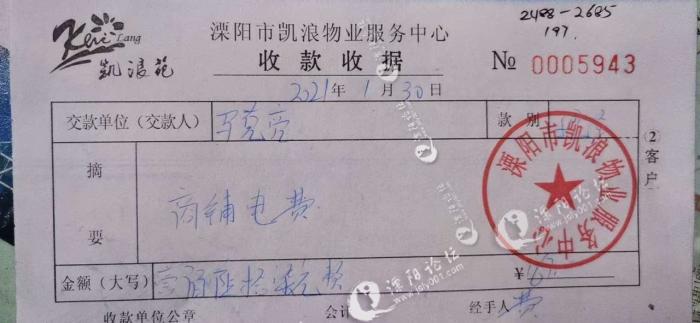 Keri Lang
凯浪苑
溧阳市凯浪物业服务中心
收款收据
2488-2685
197.
№ 0005943
2021年1月30日
交款单位(交款人)
款别
摘要
商铺电费
②客户
溧阳市凯浪物业服务中心
金额(大写)
¥
收款单位公章
会计
经手人
溧阳论坛
www.jsly001.com